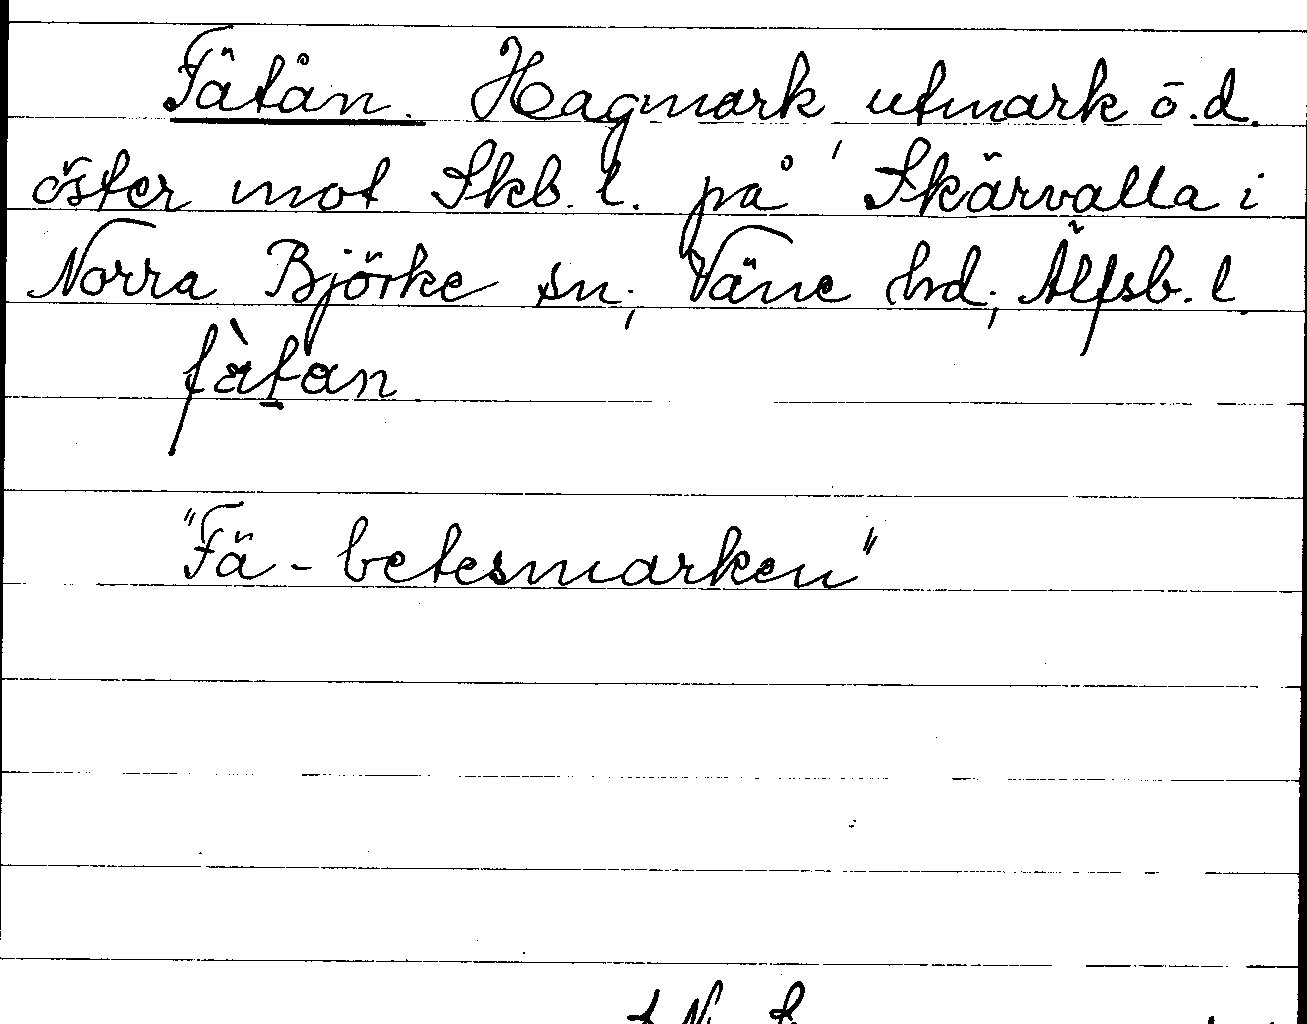 Fätån. Hagmark utmark ö.d.
öster mot Skb. l. på Skärvalla i
Norra Björke sn, Väne hd, Älfsb. l.
fàtan
"Fä-betesmarken"